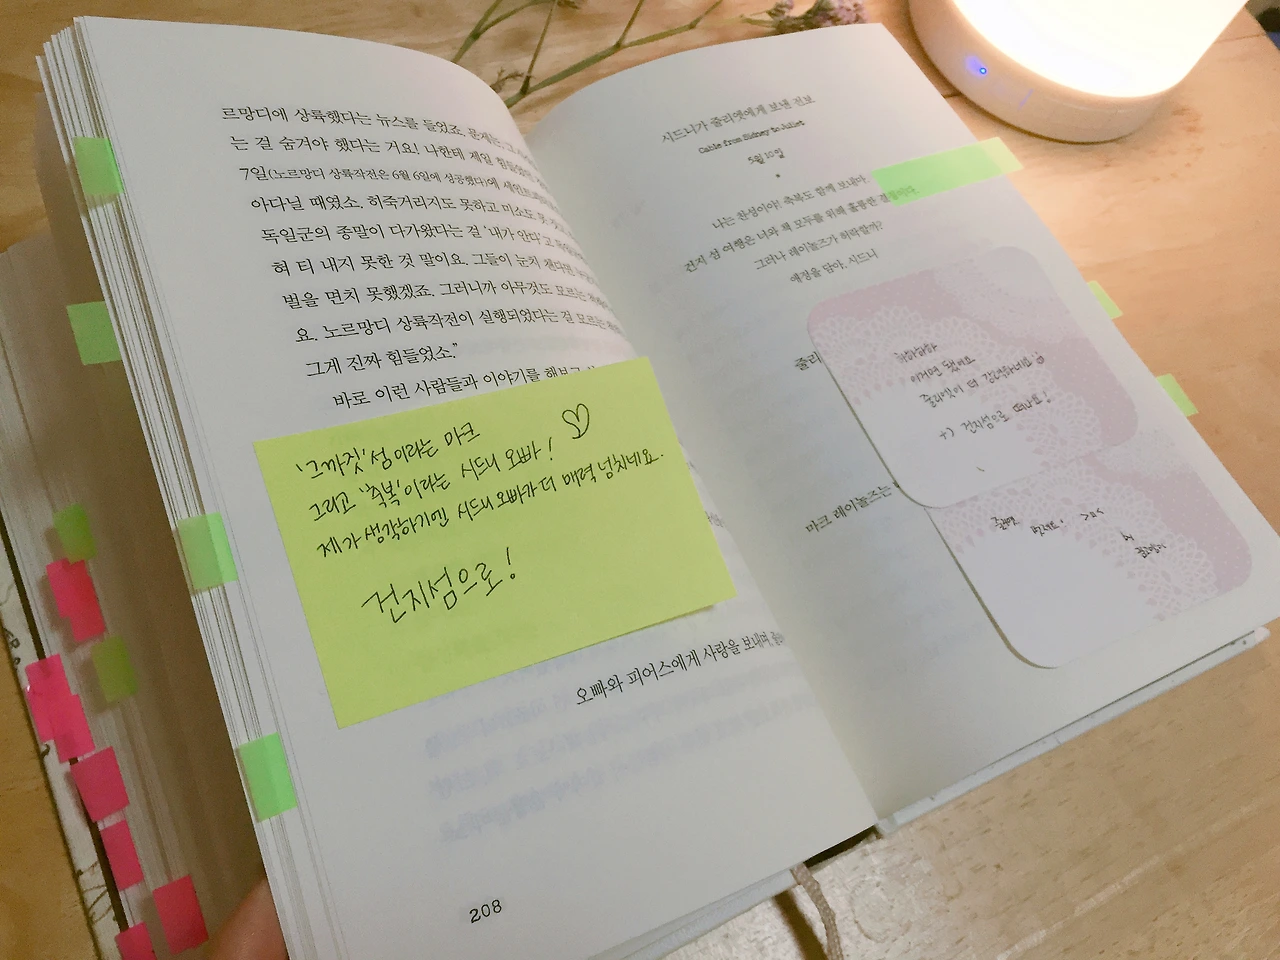 르망디에 상륙했다는 뉴스를 들었죠. 문제는
는 걸 숨겨야 했다는 거요! 나한테 제일 힘들었던
7일(노르망디 상륙작전은 6월 6일에 성공했다)에
아다닐 때였소. 히죽거리지도 못하고 미소도 못
독일군의 종말이 다가왔다는 걸 '내가 안다'고
혀 티 내지 못한 것 말이요. 그들이 눈치 챘다면
벌을 면치 못했겠죠. 그러니까 아무것도 모르는
요. 노르망디 상륙작전이 실행되었다는 걸 모르는
그게 진짜 힘들었소."
바로 이런 사람들과 이야기를 해보고
'그까짓' 섬이라는 마크
그리고 '축복'이라는 시드니 오빠! ♡
제가 생각하기엔 시드니 오빠가 더 매력 넘치네요.
건지섬으로!
오빠와 피어스에게 사랑을 보내며
208
시드니가 줄리엣에게 보낸 전보
Cable from Sidney to Juliet
5월 15일
나는 찬성이야! 축복도 함께 보낸다.
건지 섬 여행은 너와 책 모두를 위해 훌륭한
그러나 레이놀즈가 허락할까?
애정을 담아, 시드니
줄리
하하하하
이거면 됐어요
줄리엣이 더 강력하네요
+) 건지섬으로 떠나요!
마크 레이놀즈는
by